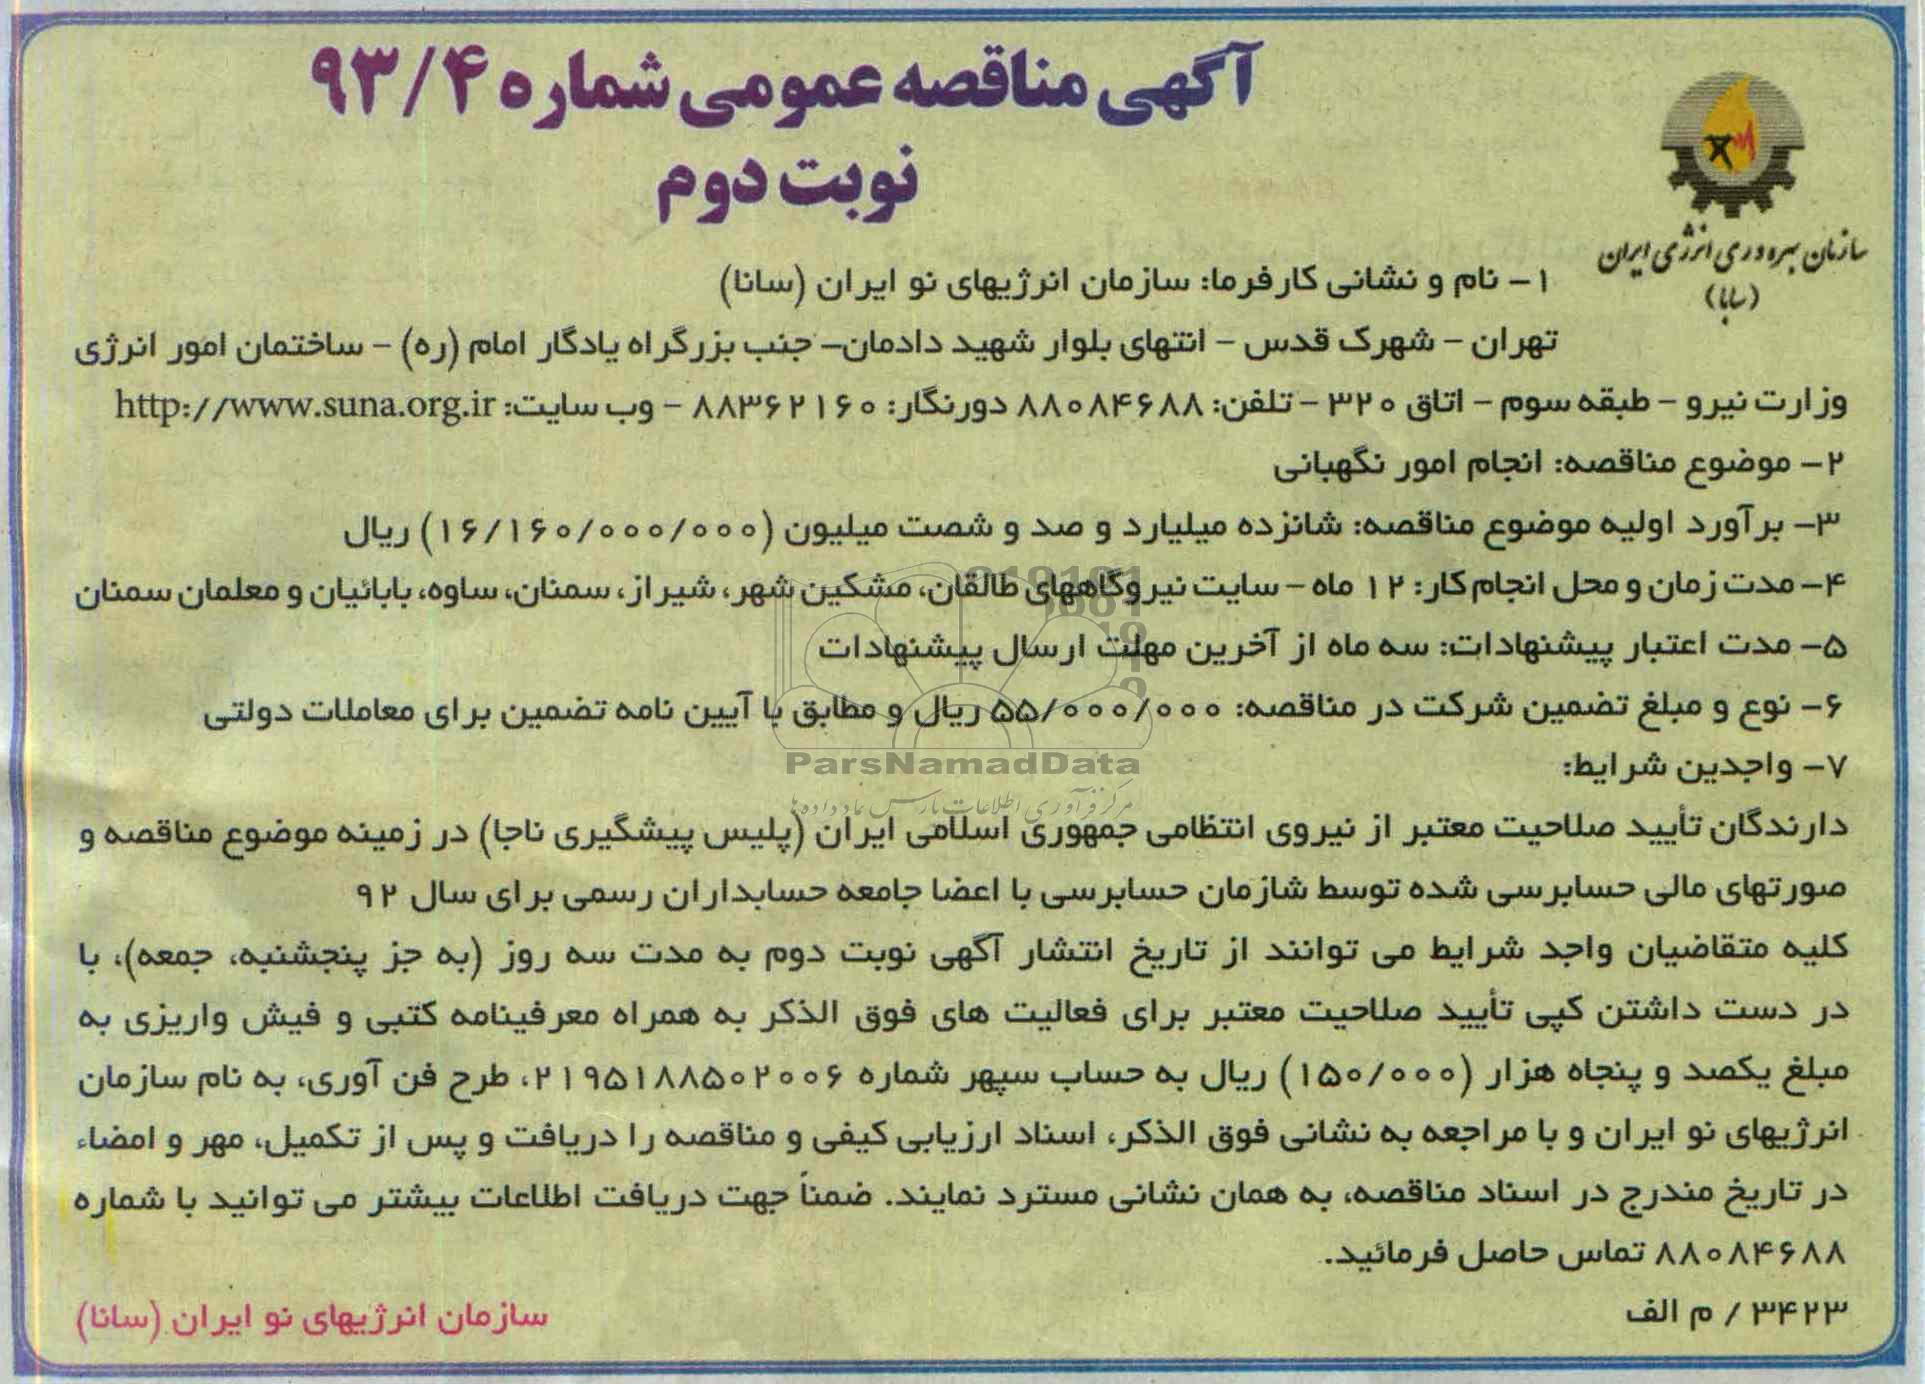 آگهی مناقصه عمومی شماره ۹۳/۴
نوبت دوم
سازمان بهره وری انرژی ایران
(سابا)
۱- نام و نشانی کارفرما: سازمان انرژیهای نو ایران (سانا)
تهران - شهرک قدس - انتهای بلوار شهید دادمان- جنب بزرگراه یادگار امام (ره) - ساختمان امور انرژی
وزارت نیرو - طبقه سوم - اتاق ۳۲۰ - تلفن: ۸۸۰۸۴۶۸۸ دورنگار: ۸۸۳۶۲۱۶۰ - وب سایت: http://www.suna.org.ir
۲- موضوع مناقصه: انجام امور نگهبانی
۳- برآورد اولیه موضوع مناقصه: شانزده میلیارد و صد و شصت میلیون (۱۶/۱۶۰/۰۰۰/۰۰۰) ریال
۴- مدت زمان و محل انجام کار: ۱۲ ماه - سایت نیروگاههای طالقان، مشکین شهر، شیراز، سمنان، ساوه، بابائیان و معلمان سمنان
۵- مدت اعتبار پیشنهادات: سه ماه از آخرین مهلت ارسال پیشنهادات
۶- نوع و مبلغ تضمین شرکت در مناقصه: ۵۵/۰۰۰/۰۰۰ ریال و مطابق با آیین نامه تضمین برای معاملات دولتی
ParsNamadData
مرکز فرآوری اطلاعات پارس نماد داده ها
۷- واجدین شرایط:
دارندگان تأیید صلاحیت معتبر از نیروی انتظامی جمهوری اسلامی ایران (پلیس پیشگیری ناجا) در زمینه موضوع مناقصه و
صورتهای مالی حسابرسی شده توسط شازمان حسابرسی با اعضا جامعه حسابداران رسمی برای سال ۹۲
کلیه متقاضیان واجد شرایط می توانند از تاریخ انتشار آگهی نوبت دوم به مدت سه روز (به جز پنجشنبه، جمعه)، با
در دست داشتن کپی تأیید صلاحیت معتبر برای فعالیت های فوق الذکر به همراه معرفینامه کتبی و فیش واریزی به
مبلغ یکصد و پنجاه هزار (۱۵۰/۰۰۰) ریال به حساب سپهر شماره ۲۱۹۵۱۸۸۵۰۲۰۰۶، طرح فن آوری، به نام سازمان
انرژیهای نو ایران و با مراجعه به نشانی فوق الذکر، اسناد ارزیابی کیفی و مناقصه را دریافت و پس از تکمیل، مهر و امضاء
در تاریخ مندرج در اسناد مناقصه، به همان نشانی مسترد نمایند. ضمناً جهت دریافت اطلاعات بیشتر می توانید با شماره
۸۸۰۸۴۶۸۸ تماس حاصل فرمائید.
۳۴۲۳ / م الف
سازمان انرژیهای نو ایران (سانا)